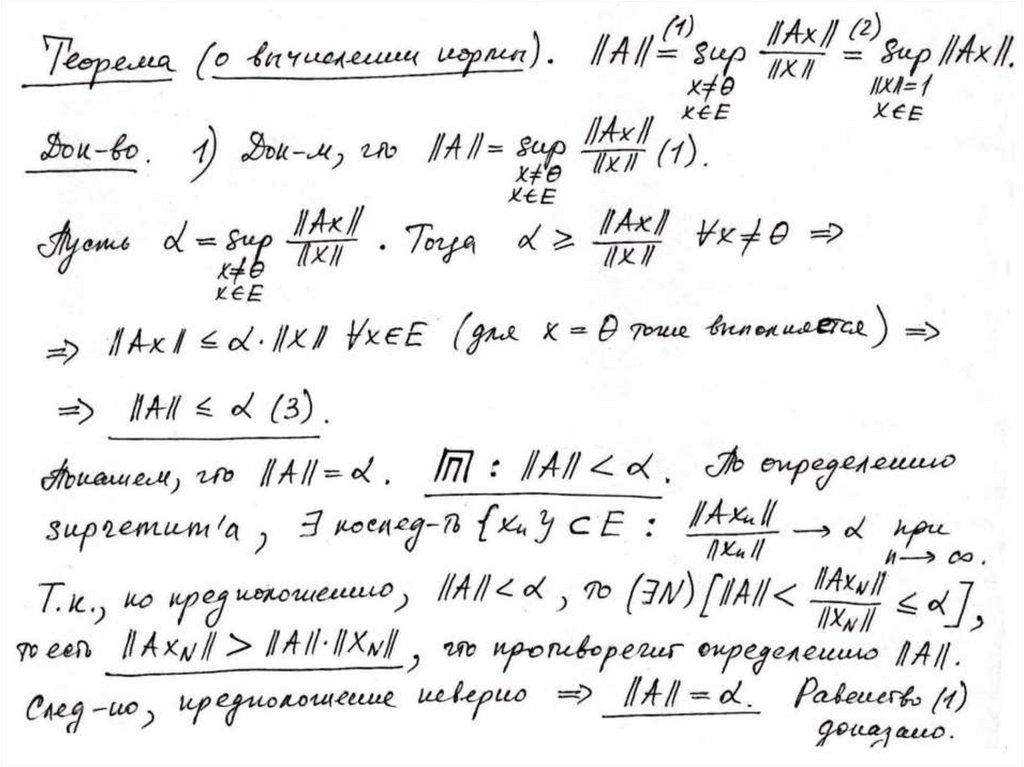 Теорема (о вычислении нормы). ||A|| =⁽¹⁾ sup ||Ax|| / ||x|| =⁽²⁾ sup ||Ax||.
x≠θ ||x||=1
x∈E x∈E
Док-во. 1) Док-м, что ||A|| = sup ||Ax|| / ||x|| (1).
x≠θ
x∈E
Пусть α = sup ||Ax|| / ||x||. Тогда α ≥ ||Ax|| / ||x|| ∀x≠θ ⇒
x≠θ
x∈E
⇒ ||Ax|| ≤ α·||x|| ∀x∈E (для x = θ тоже выполняется) ⇒
⇒ ||A|| ≤ α (3).
Покажем, что ||A|| = α. П : ||A|| < α. По определению
supremum'a, ∃ послед-ть {xn} ⊂ E : ||Axn|| / ||xn|| → α при
n → ∞.
Т.к., по предположению, ||A|| < α, то (∃N) [||A|| < ||AxN|| / ||xN|| ≤ α],
то есть ||AxN|| > ||A||·||xN||, что противоречит определению ||A||.
След-но, предположение неверно ⇒ ||A|| = α. Равенство (1)
доказано.